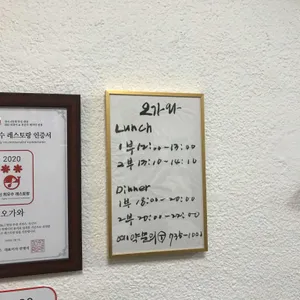 수 레스토랑 인증서
2020
오가와
오가와
Lunch
1부 12:00~13:00
2부 13:10~14:10
Dinner
1부 18:00~20:00
2부 20:00~22:00
예약문의